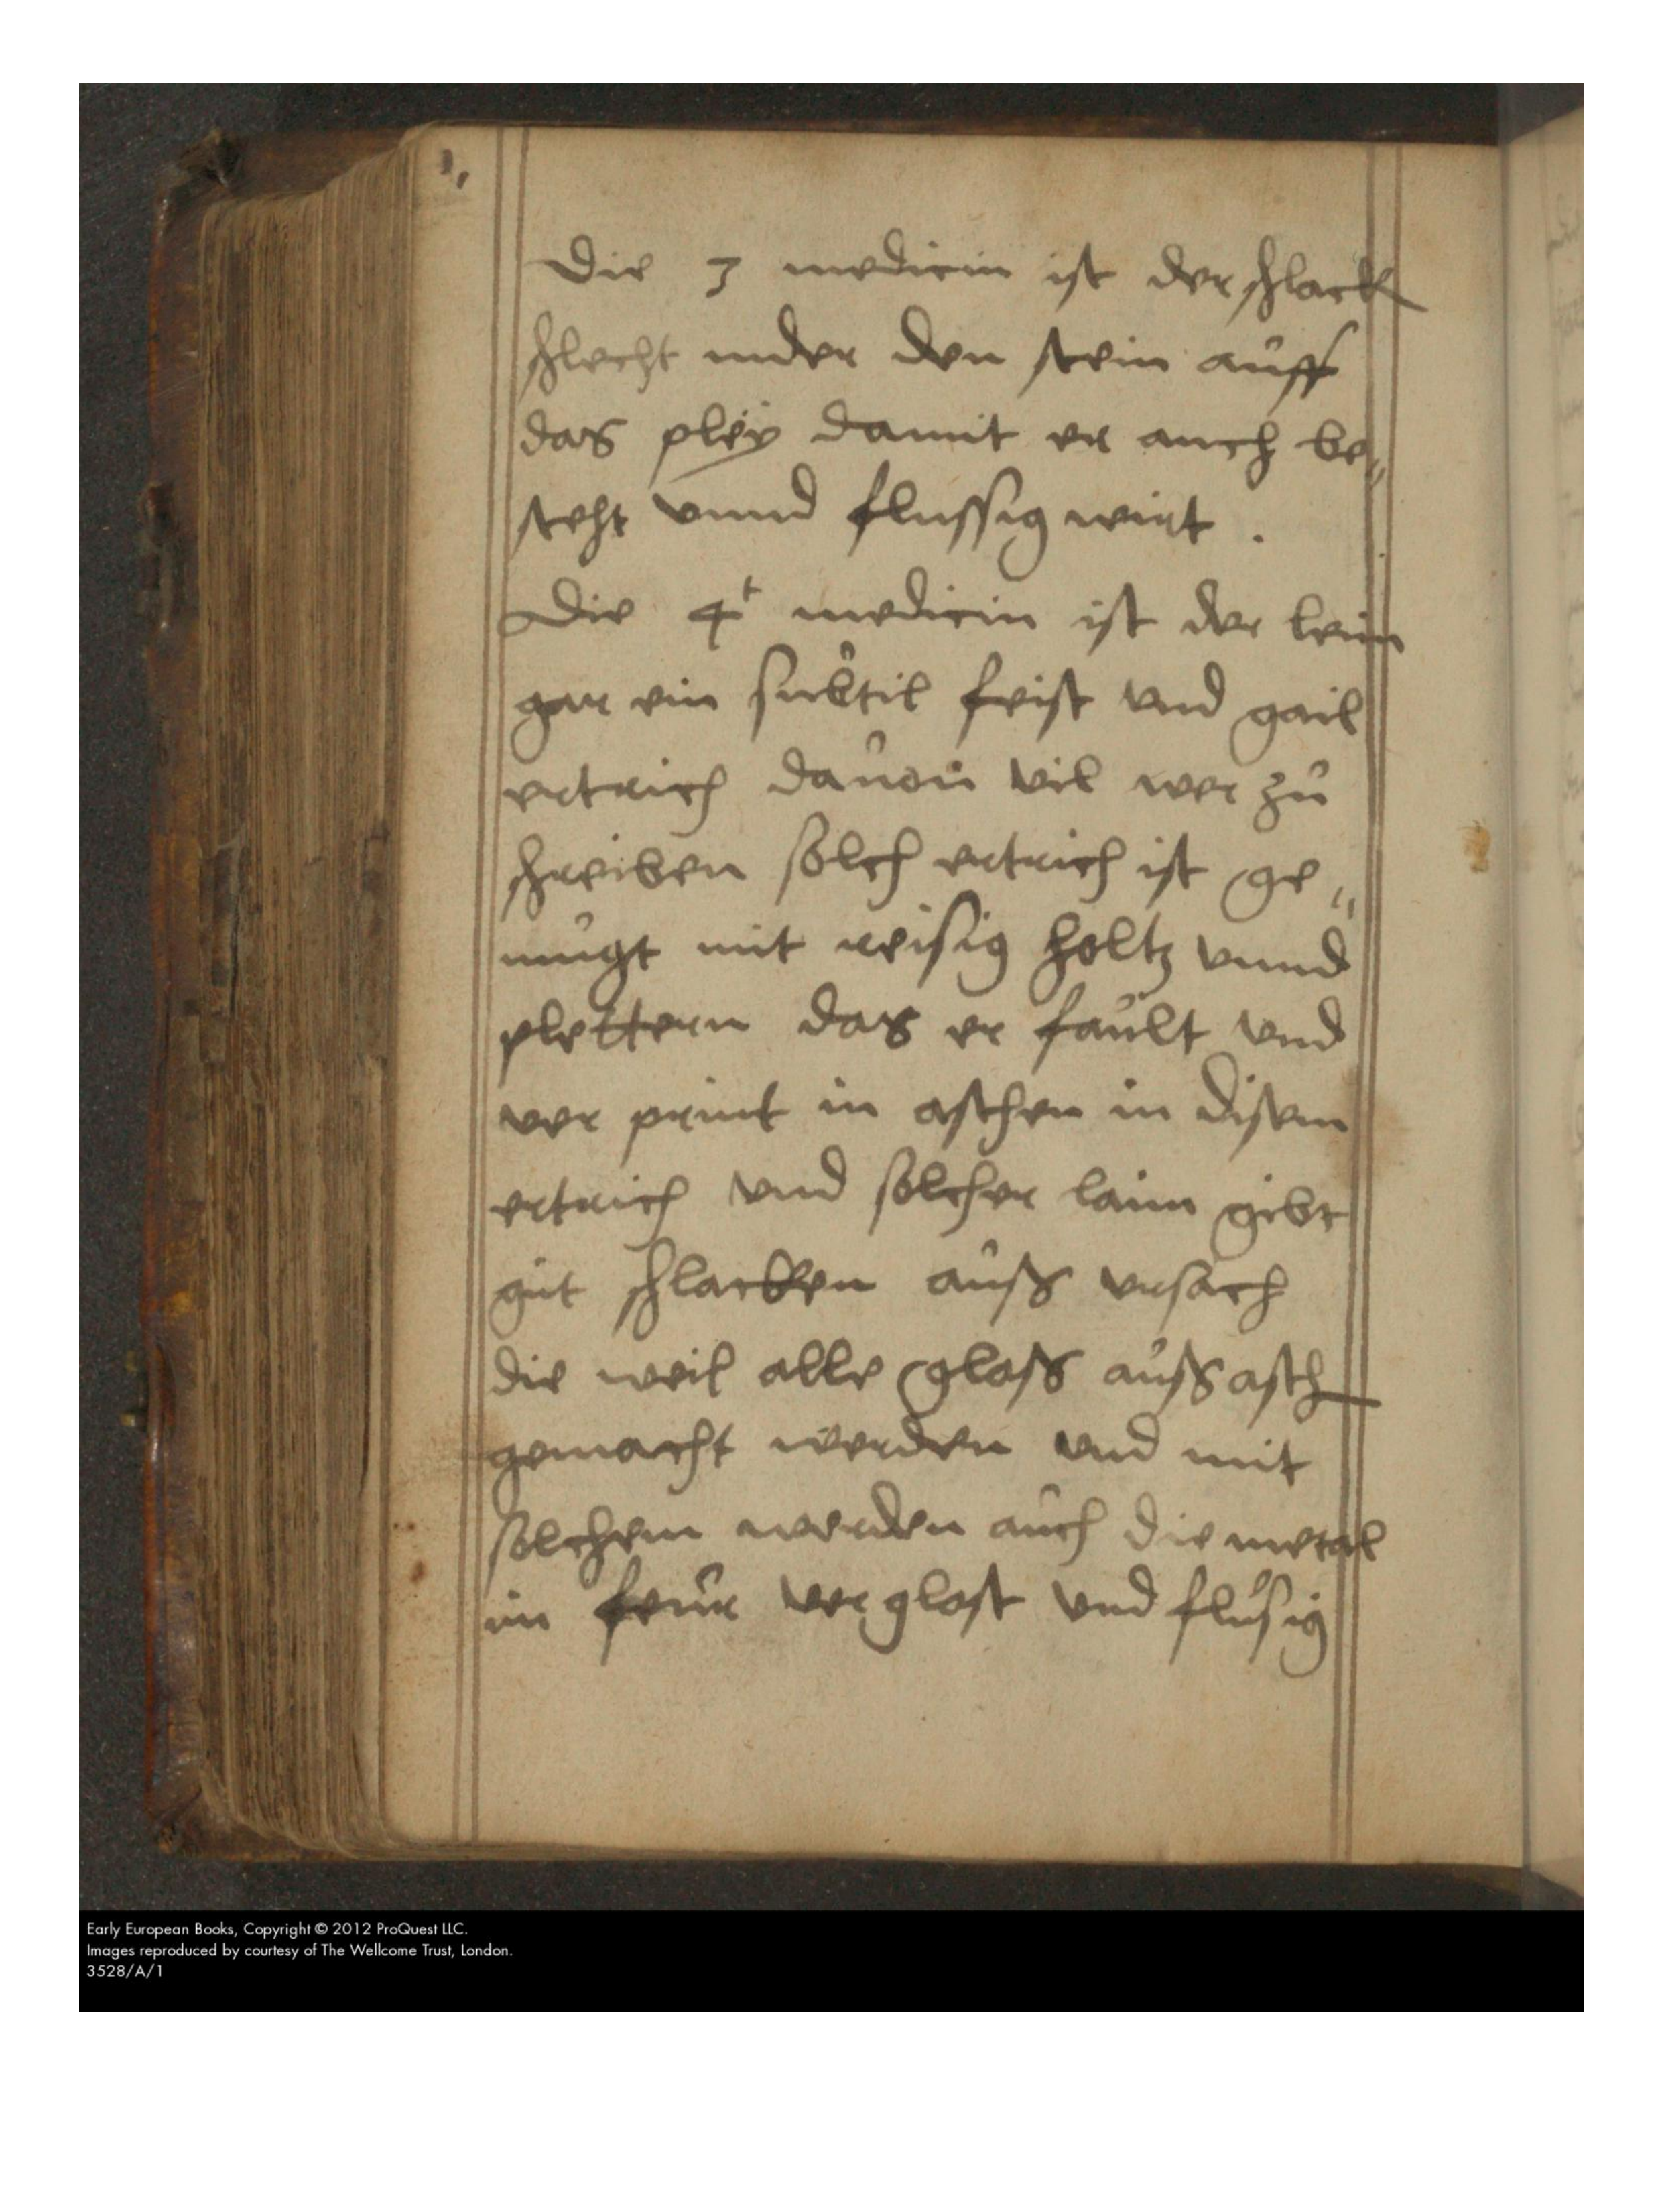 Die 3 medicin ist der schlack
schlecht under den stein auff
das pley damit er auch be„
steht vnnd flussig wirt .
Die 4t medicin ist der leim
gar ein subtil feist vnd gail
ertrich dauon vil wer zu
schreiben solch ertrich ist ge„
mugt mit reisig holtz vnnd
plettern das er fault vnd
ver print in aschen in disem
ertrich vnd solcher laim gibt
gut schlacken auß vrsach
die weil alle glaß auß asch
gemacht werden vnd mit
solchem werden auch die metal
im feur verglast vnd flusig
Early European Books, Copyright © 2012 ProQuest LLC.
Images reproduced by courtesy of The Wellcome Trust, London.
3528/A/1